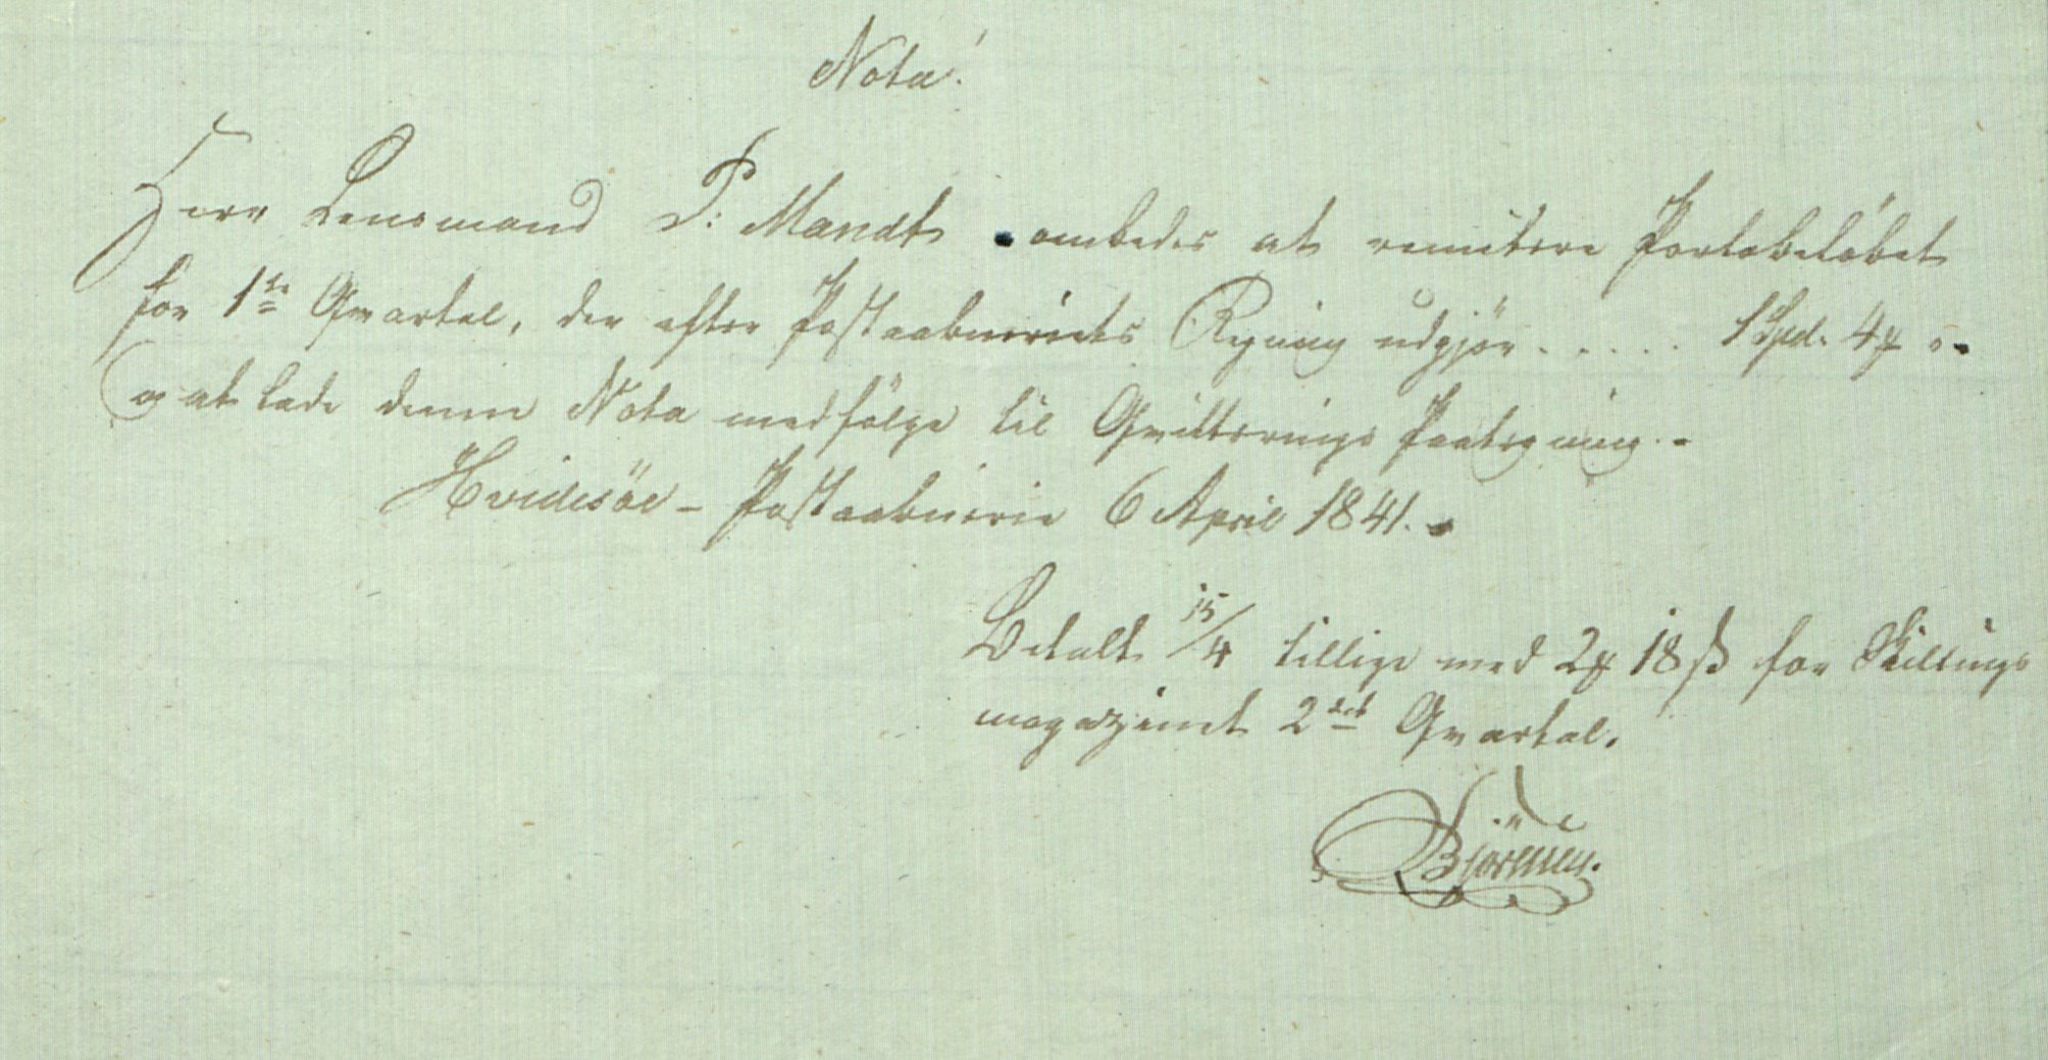 Nota!
Herr Lensmand P: Mandt ombedes at remitere Portobelöbet
for 1ste Qvartal, der efter Postaabneriets Regning udgjör ..... 1 Spd. 4 ℔ "
og at lade denne Nota medfölge til Qvitterings Paategning.-
Hvidesöe - Postaabnerie 6 April 1841.
Betalt 15/4 tillige med 2 ℔ 18 ß for Skillings
magazinet 2det Qvartal.